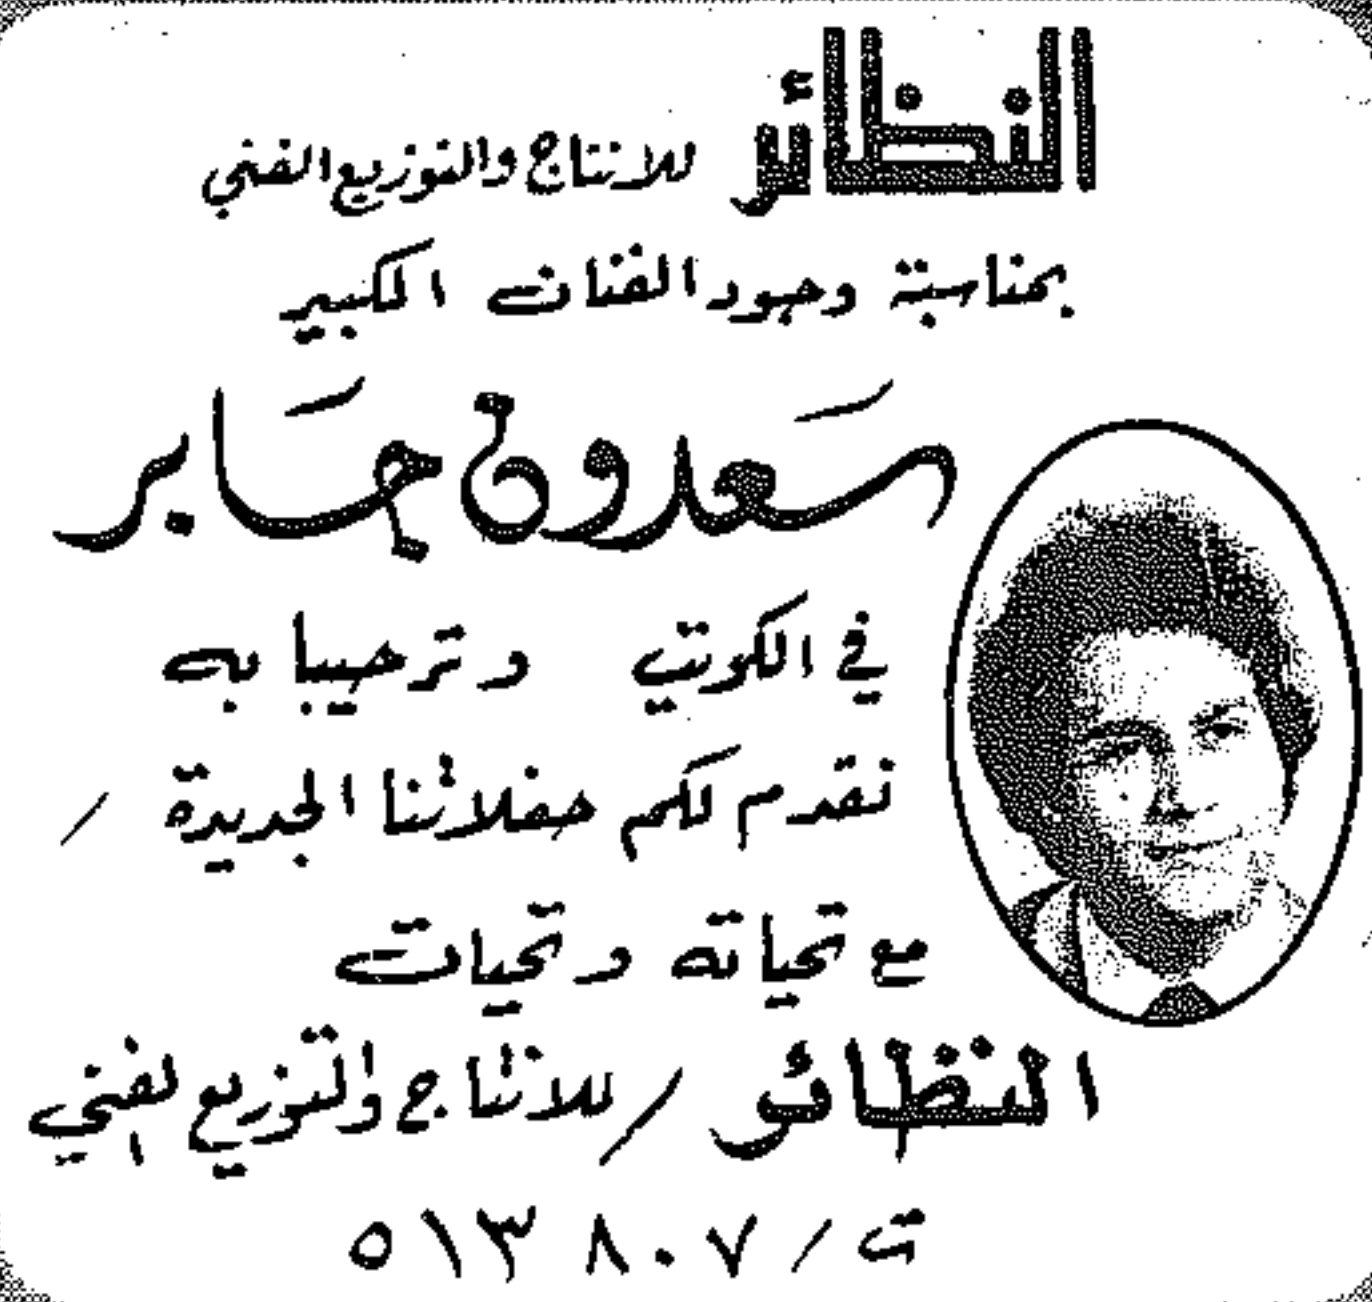 النظائر للانتاج والتوزيع الفني
بمناسبة وجود الفنان الكبير
سَعدون جَابر
في الكويت وترحيبا به
نقدم لكم حفلاتنا الجديدة /
مع تحياته وتحيات
النظائر / للانتاج والتوزيع الفني
ت / ٨٠٧ ٥١٣